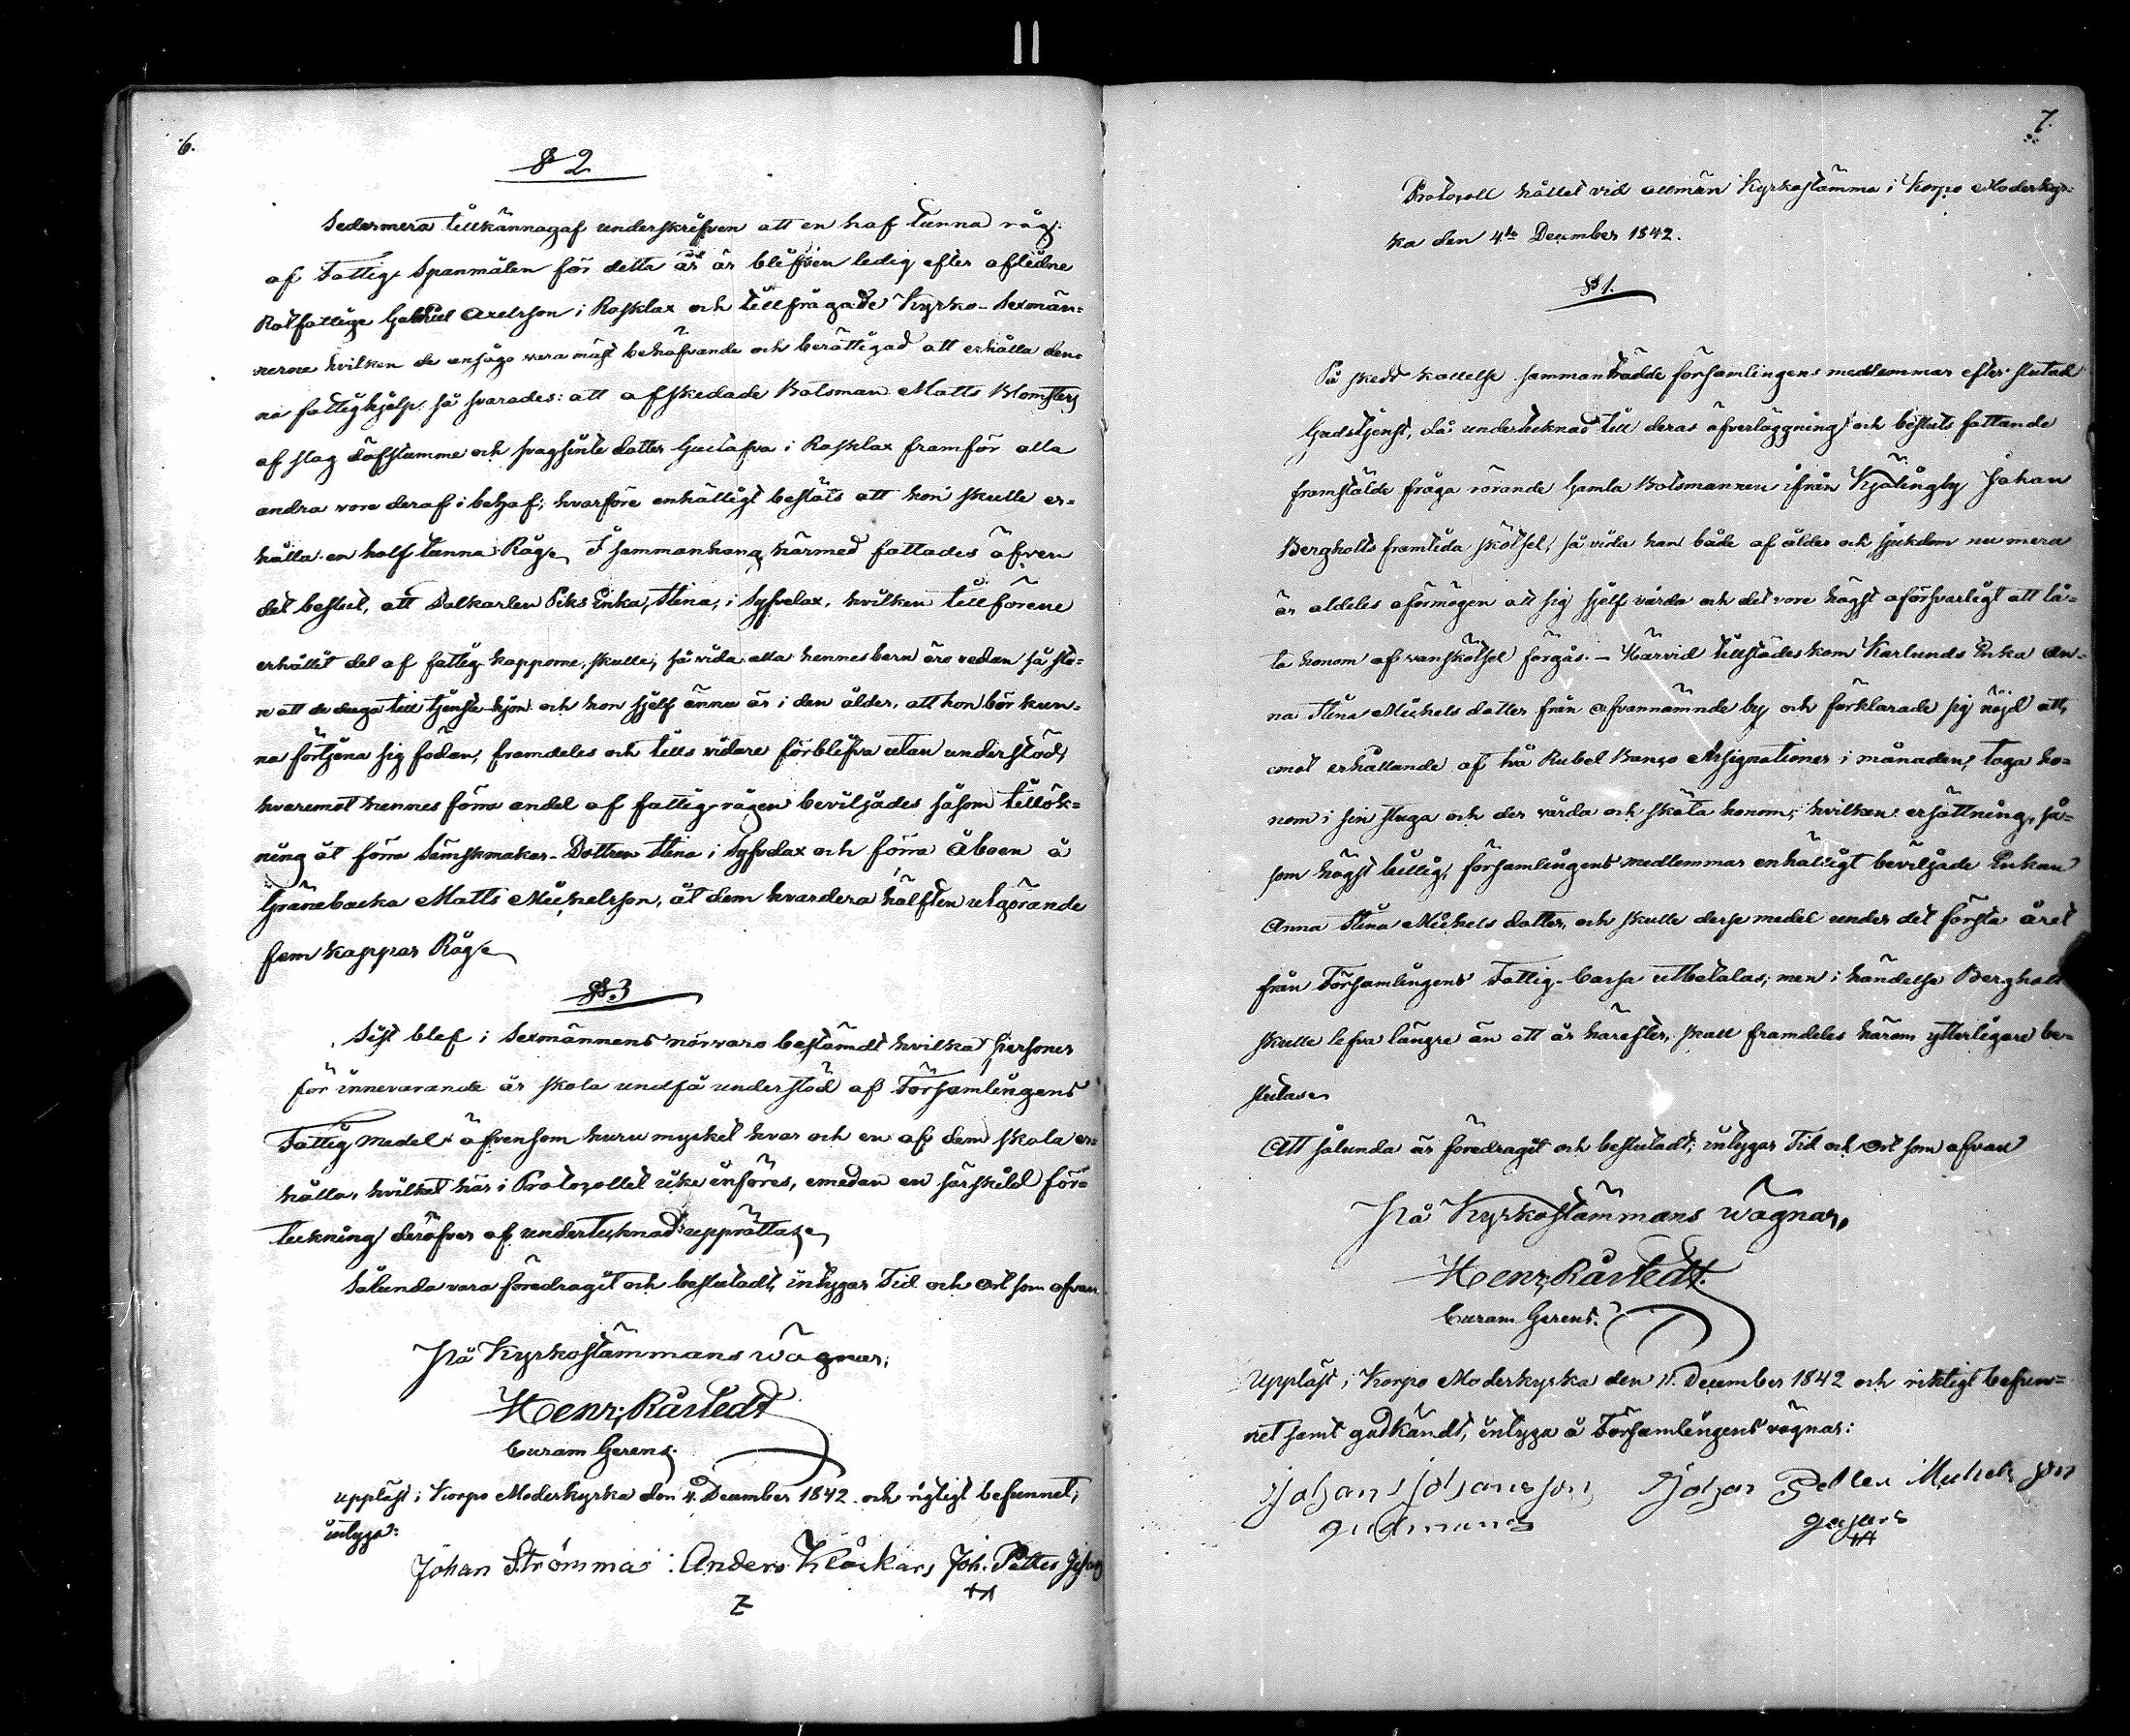 6.
§ 2
Sedermera tillkännagaf underskrifven att en half tunna råg
af Fattig Spanmålen för detta år är blifven ledig efter aflidne
Rotfattige Gabriel Axelsson i Rosklax och tillfrågade Kyrko-Sexmän-
nerne hvilken de ansågo vara mäst behöfvande och berättigad att erhålla den-
na fattighjelp, så svarades: att afskedade Botsman Matts Blomsters
af slag döfstumme och svagsinte dotter Gustafva i Rosklax framför alla
andra vore deraf i behof; hvarföre enhälligt beslöts att hon skulle er-
hålla en half tunna Råg. I sammanhang härmed fattades äfven
det beslut, att Dalkarlen Piks Enka, Stina, i Syfvelax, hvilken tillförene
erhållit del af fattig kapporne, skulle, så vida alla hennes barn äro redan så sto-
re att de duga till tjenste hjon och hon sjelf ännu är i den ålder, att hon bör kun-
na förtjena sig födan, framdeles och tills vidare förblifva utan understöd,
hvaremot hennes förra andel af fattig rågen beviljades såsom tillök-
ning åt förra Sämskmakar-Dottren Stina i Syfvelax och förra Åboen å
Gränebacka Matts Michelsson, åt dem hvardera hälften utgörande
fem kappar Råg.
§ 3
Sist blef i Sexmännens närvaro bestämdt hvilka personer
för innevarande år skola undfå understöd af Församlingens
Fattig medel äfvensom huru mycket hvar och en af dem skola er-
hålla, hvilket här i Protocollet icke införes, emedan en särskild för-
teckning deröfver af undertecknad upprättas.
Sålunda vara föredragit och beslutadt, intygar Tid och Ort som ofvan
På Kyrkostämmans vägnar;
Henr. Råstedt
Curam Gerens.
Uppläst i Korpo Moderkyrka den 4. December 1842 och rigtigt befunnet,
intyga:
Johan Strömma : Anders Klåckars Joh. Petter
7.
Protocoll hållet vid allmän Kyrkostämma i Korpo Moderkyr-
ka den 4de December 1842.
§ 1.
På skedd kallelse sammanträdde församlingens medlemmar efter slutad
Gudstjenst, då undertecknad till deras öfverläggning och besluts fattande
framstälde fråga rörande Gamla Botsmannen ifrån Kjälingby Johan
Bergholts framtida skötsel, så vida han både af ålder och sjukdom numera
är aldeles oförmögen att sig sjelf vårda och det vore högst oförsvarligt att lå-
ta honom af vanskötsel förgås. – Härvid tillstädes kom Karlunds Enka An-
na Stina Michels dotter från ofvannämnde by och förklarade sig nöjd att,
emot erhållande af två Rubel Banco Assignationer i månaden, taga ho-
nom i sin stuga och der vårda och sköta honom; hvilken ersättning, så-
som högst billig, församlingens medlemmar enhälligt beviljade Enkan
Anna Stina Michels dotter, och skulle desse medel under det första året
från Församlingens Fattig-Cassa utbetalas; men i händelse Bergholt
skulle lefva längre än ett år härefter, skall framdeles härom ytterligare be-
slutas.
Att sålunda är föredragit och beslutadt, intygar Tid och Ort som ofvan
På Kyrkostämmans vägnar,
Henr. Råstedt.
Curam Gerens.
Uppläst i Korpo Moderkyrka den 11. December 1842 och riktigt befun-
net samt godkändt, intyga å Församlingens vägnar:
Johan Johansson Johan Petter Michelsson